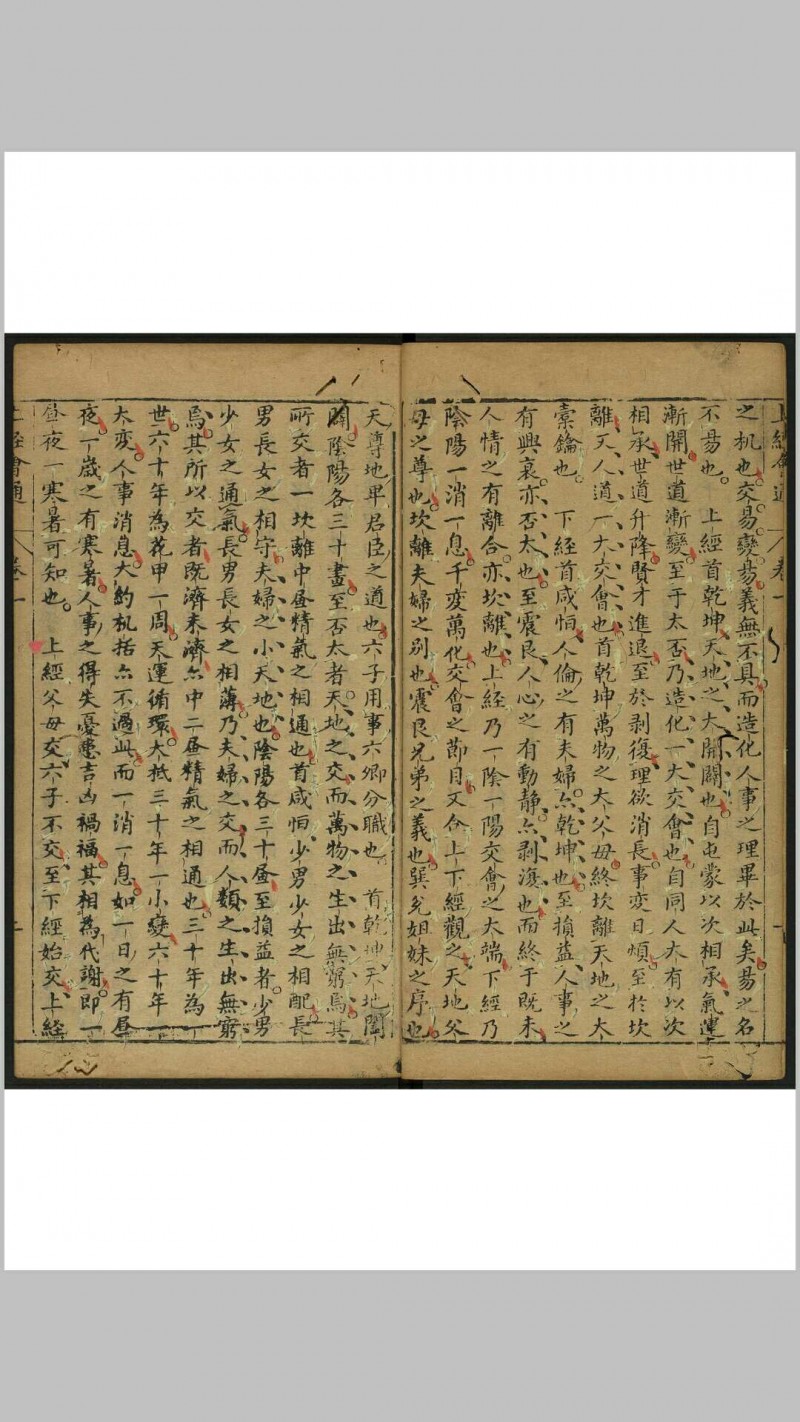 之机也交易變易義無不具而造化人事之理畢於此矣易之名
不易也　上經首乾坤天地之大開闢也自屯蒙以次相承氣運
漸開世道漸變至于太否乃造化一大交會也自同人大有以次
相承世道升降賢才進退至於剥復理欲消長事变日煩至於坎
離天人道一大交會也首乾坤萬物之大父母終坎離天地之大
橐鑰也　下経首咸恒人倫之有夫婦亦乾坤也至損益人事之
有興衰亦否太也至震艮人心之有動静亦剥復也而終于既未
人情之有離合亦坎離也上経乃一陰一陽交會之大端下經乃
陰陽一消一息千变萬化交會之節目又合上下經觀之天地父
母之尊也坎離夫婦之别也震艮兄弟之義也巽兌姐妹之序也
天尊地卑君臣之道也六子用事六卿分職也　首乾坤天地闔
闢陰陽各三十畫至否太者天地之交而萬物之生出無窮焉其
所交者一坎離中昼精氣之相通也首咸恒少男少女之相配長
男長女之相守夫婦之小天地也陰陽各三十昼至損益者少男
少女之通氣長男長女之相薄乃夫婦之交而人類之生出無窮
焉其所以交者既濟未濟亦中二昼精氣之相通也三十年為一
世六十年為花甲一周天運循環大抵三十年一小變六十年一
大变人事消息大約机括亦不過此而一消一息如一日之有昼
夜一歲之有寒暑人事之得失憂患吉凶禍福其相為代謝即一
昼夜一寒暑可知也　上經父母交六子不交至下經始交上經
上經會通　卷一